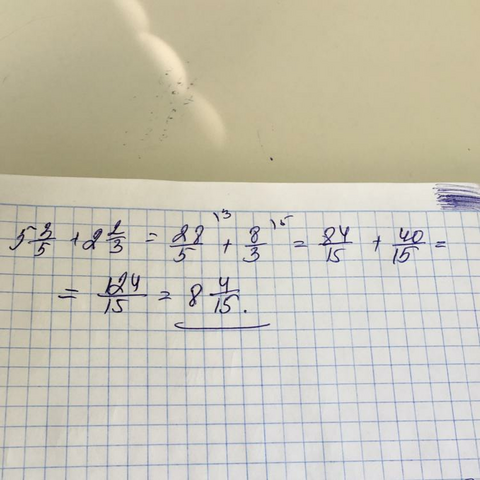 5 3/5 + 2 2/3 = 28/5 \3 + 8/3 \5 = 84/15 + 40/15 =
= 124/15 = 8 4/15.